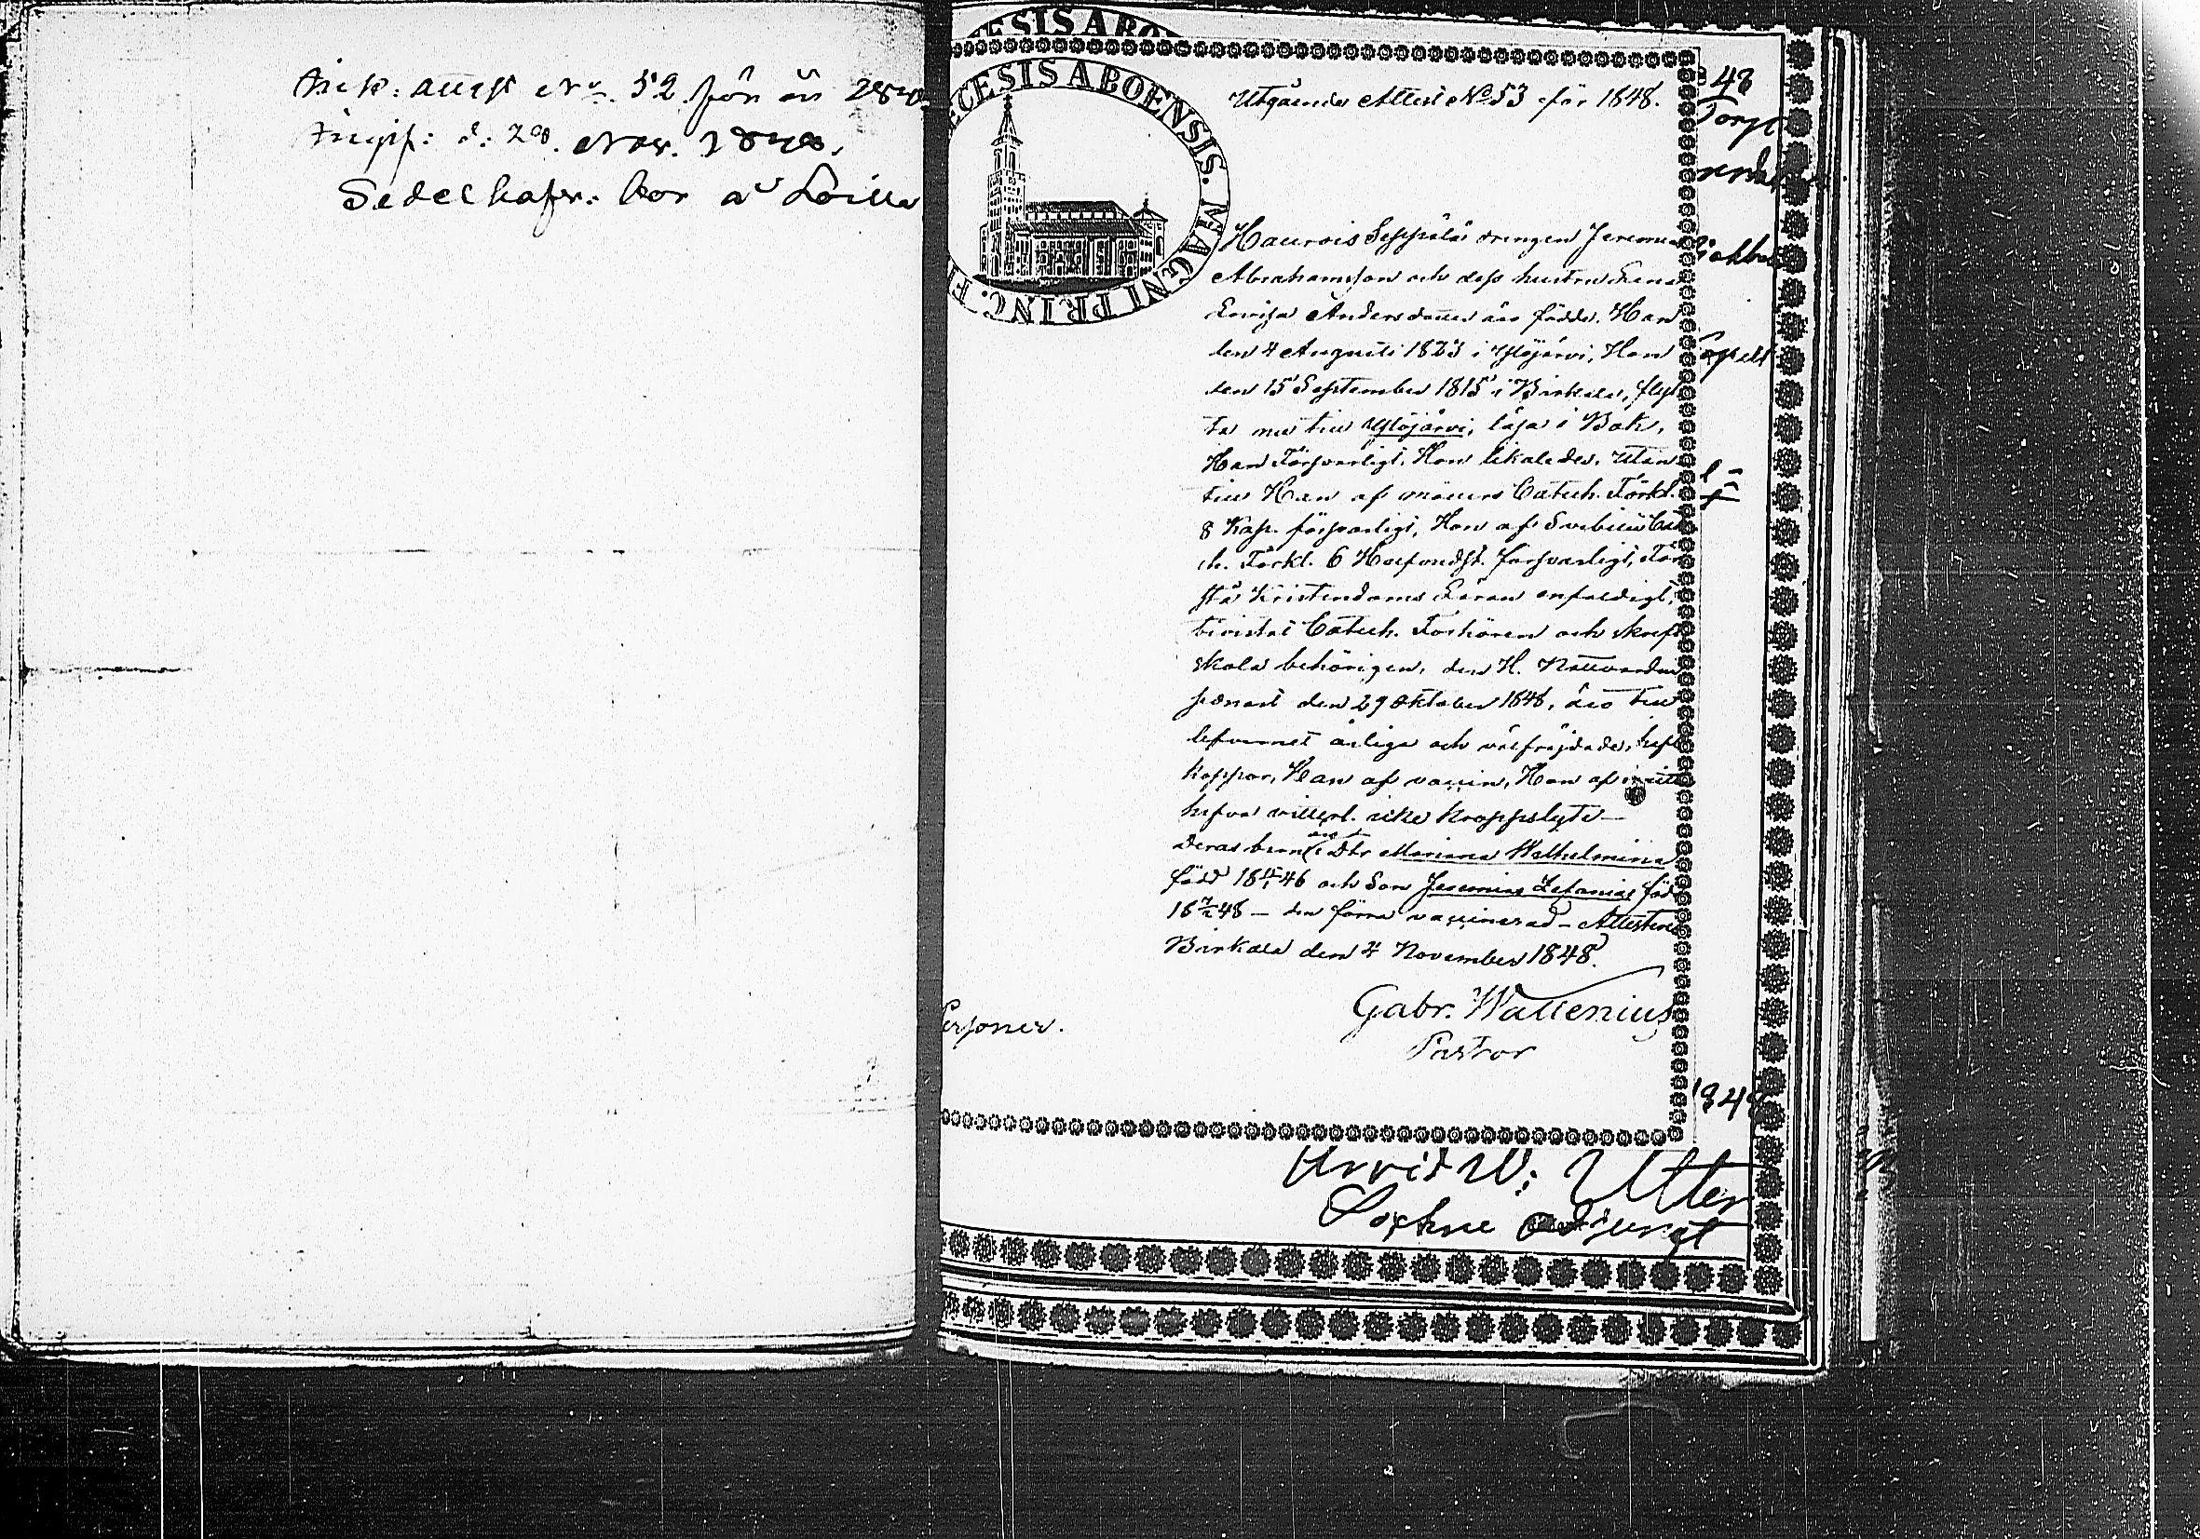 Ink: attest No. 52 för år 1848
Ingif: d: 28. Nov. 1848.
Sedelhafv: bor å
ECESIS ABO
ECESIS ABOENSIS. MAGNI PRINC. F
Utgående Attest No 53 för 1848.
Haurois Seppälä drengen Jeremias
Abrahamsson och dess hustru Lena
Lovisa Andersdotter äro födde. Han
den 4 Augusti 1823 i Ylöjärvi, Hon
den 15 September 1815 i Birkala, flyt
ta nu till Ylöjärvi, läsa i Bok,
Han Försvarligt, Hon likaledes. Utan
till Han af Catech. Förkl.
8 Kap. försvarligt, Hon af Svebilii Cat
ch. Förkl. 6 försvarligt, För
stå Kristendoms Läran enfaldigt,
bevistat Catech. Förhören och skrift
skola behörigen, den H. Nattvarden
senast den 29 Oktober 1848, äro till
lefvernet ärliga och välfrejdade, haft
koppor, Han af vaccin, Hon af
hafva vitterl. icke kroppslyte —
Deras barn Dtr Mariana Wilhelmina
född 18 4/1 46 och Son Jeremias Zefanias född
18 7/2 48 — den förra vaccinerad — Attesterar
Birkala den 4 November 1848.
Gabr. Wallenius
Pastor
Personer.
48
Torp
1848
Arvid W: Utter
Sockne Adjunct